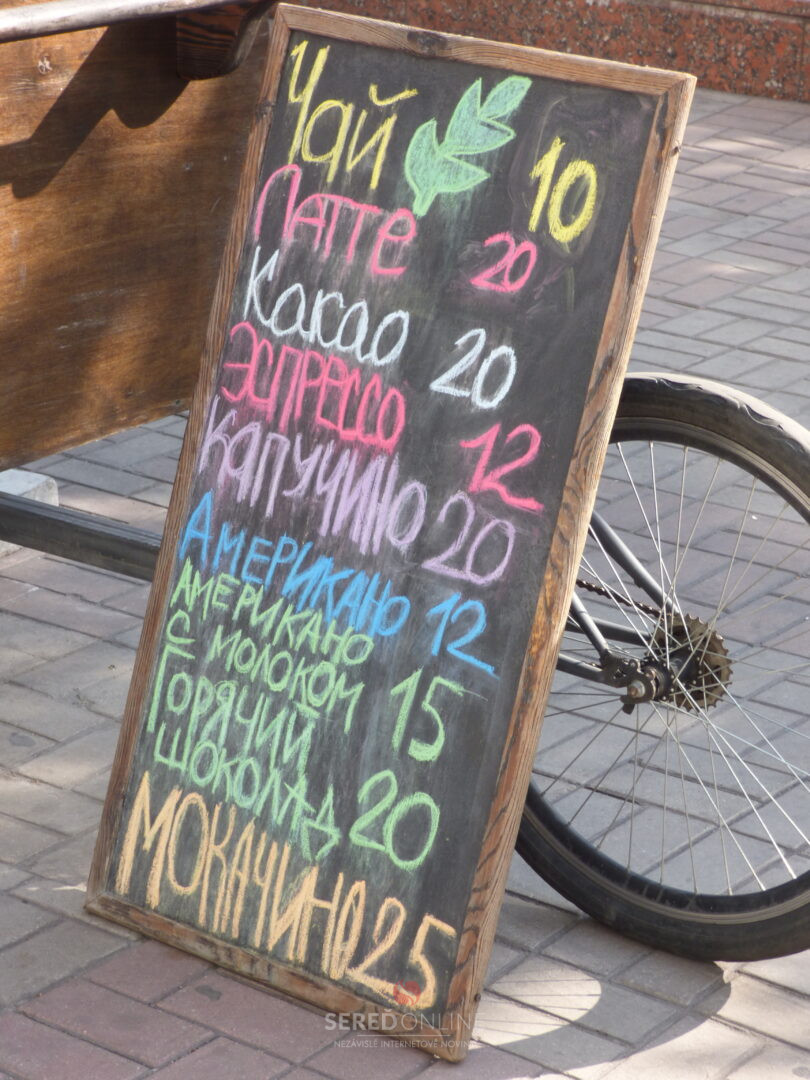 Чай 10
Латте 20
Какао 20
ЭСПРЕССО 12
КАПУЧИНО 20
АМЕРИКАНО 12
АМЕРИКАНО
С МОЛОКОМ 15
ГОРЯЧИЙ
ШОКОЛАД 20
МОКАЧИНО 25
SEREĎONLINE
NEZÁVISLÉ INTERNETOVÉ NOVINY